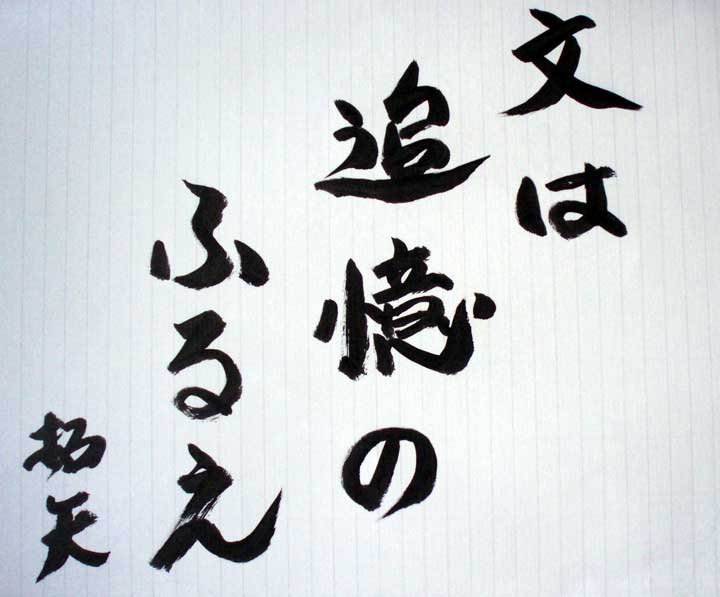 文は
追憶の
ふるえ
拓矢